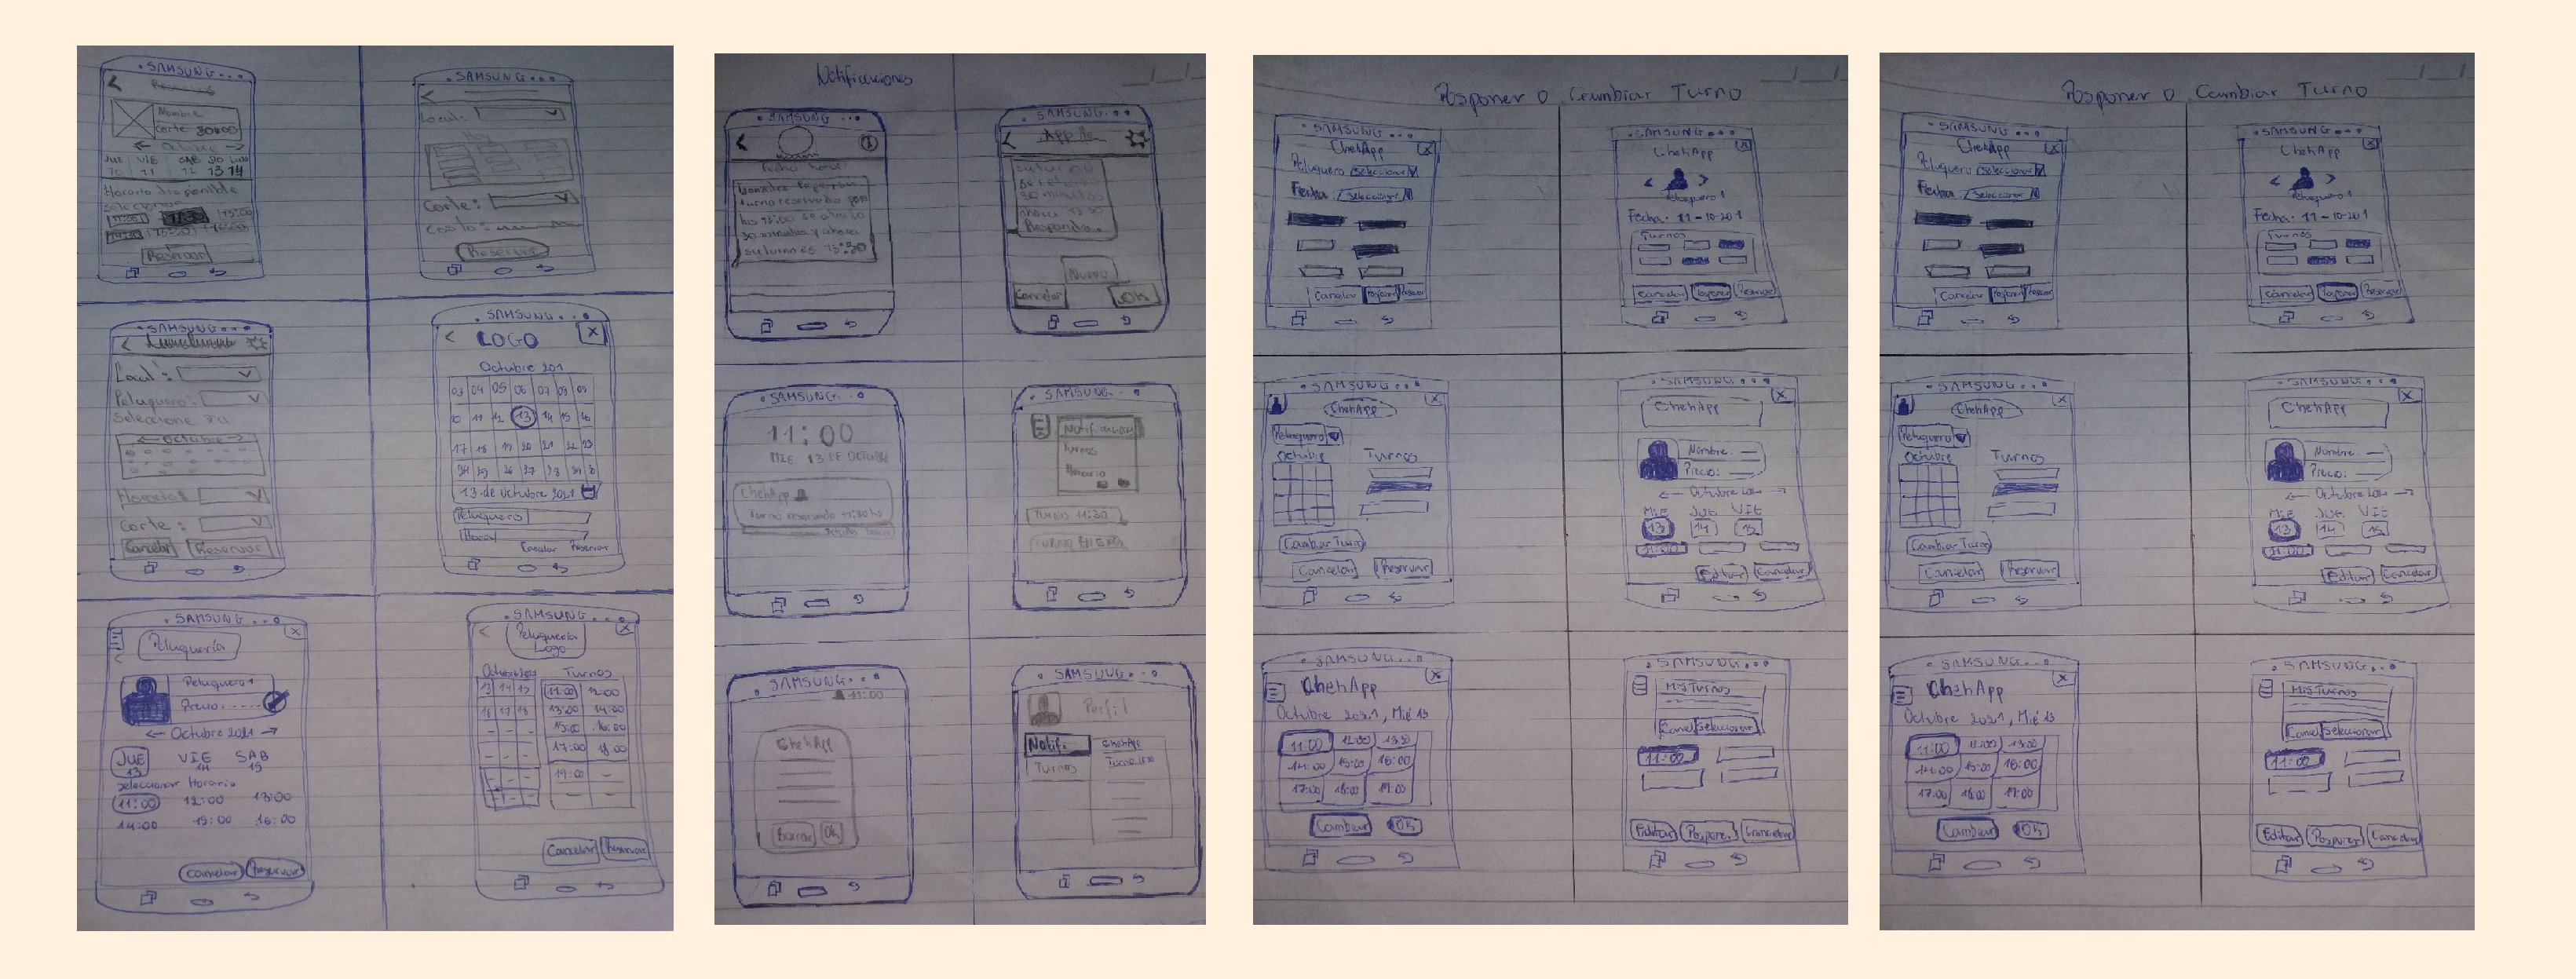 • SAMSUNG • • •
Nombre
Corte 30000
← Octubre →
JUE VIE SAB DO LUN
10 11 12 13 14
Horario disponible
Seleccionar
11:00 11:30 15:00
14:30 15:30 16:00
Reservar
• SAMSUNG • • •
Local:
Hoy
Corte:
Costo:
Reservar
• SAMSUNG • • •
Local:
Peluquero:
Seleccione Día
← Octubre →
Horarios
Corte:
Cancelar Reservar
• SAMSUNG • • •
LOGO
X
Octubre 201
03 04 05 06 07 08 09
10 11 12 13 14 15 16
17 18 19 20 21 22 23
13 de Octubre 2021
Peluquero
Hora
Cancelar Reservar
• SAMSUNG • • •
X
Peluquería
Peluquero 1
Precio
← Octubre 2021 →
JUE VIE SAB
13 14 15
Seleccionar Horario
11:00 12:00 13:00
14:00 15:00 16:00
Cancelar Reservar
• SAMSUNG • • •
X
Peluquería
Logo
Turnos
13 14 15
16 17 18
11:00 12:00
13:00 14:00
15:00 16:00
17:00 18:00
19:00
Cancelar Reservar
Notificaciones
• SAMSUNG • • •
turno reservado para
las 13:00 se atrazo
30 minutos y ahora
su turno es 13:30
• SAMSUNG • • •
App
su turno
se retraso
30 minutos
ahora 13:30
Responda.
Nuevo
Cancelar OK
• SAMSUNG • • •
11:00
MIE. 13 DE OCTUBRE
ChehApp
Turno reservado 11:30hs
• SAMSUNG • •
Notificaciones
Turnos
Horario
Turno 11:30
• SAMSUNG • • •
11:00
ChehApp
Borrar Ok
• SAMSUNG • • •
Perfil
Notif.
Turnos
ChehApp
Posponer o Cambiar Turno
• SAMSUNG • • •
ChehApp
X
Peluquero Seleccionar
Fecha: Seleccionar
Cancelar Posponer Reservar
• SAMSUNG • • •
ChehApp
X
< >
Peluquero 1
Fecha: 11-10-201
Turnos
Cancelar Posponer Reservar
• SAMSUNG • • •
ChehApp
X
Peluquero
Octubre
Turnos
Cambiar Turno
Cancelar Reservar
• SAMSUNG • • •
X
ChehApp
Nombre:
Precio:
← Octubre 2021 →
MIE JUE VIE
13 14 15
11:00
Editar Cancelar
• SAMSUNG • • •
ChehApp
X
Octubre 2021, Mié 13
11:00 12:00 13:00
14:00 15:00 16:00
17:00 18:00 19:00
Cambiar Ok
• SAMSUNG • • •
Mis Turnos
Cancel Seleccionar
11:00
Editar Posponer Cancelar
Posponer o Cambiar Turno
• SAMSUNG • • •
ChehApp
X
Peluquero Seleccionar
Fecha: Seleccionar
Cancelar Posponer Reservar
• SAMSUNG • • •
ChehApp
X
< >
Peluquero 1
Fecha: 11-10-201
Turnos
Cancelar Posponer Reservar
• SAMSUNG • • •
ChehApp
X
Peluquero
Octubre
Turnos
Cambiar Turno
Cancelar Reservar
• SAMSUNG • • •
X
ChehApp
Nombre:
Precio:
← Octubre 2021 →
MIE JUE VIE
13 14 15
11:00
Editar Cancelar
• SAMSUNG • • •
ChehApp
X
Octubre 2021, Mié 13
11:00 12:00 13:00
14:00 15:00 16:00
17:00 18:00 19:00
Cambiar Ok
• SAMSUNG • • •
Mis Turnos
Cancel Seleccionar
11:00
Editar Posponer Cancelar